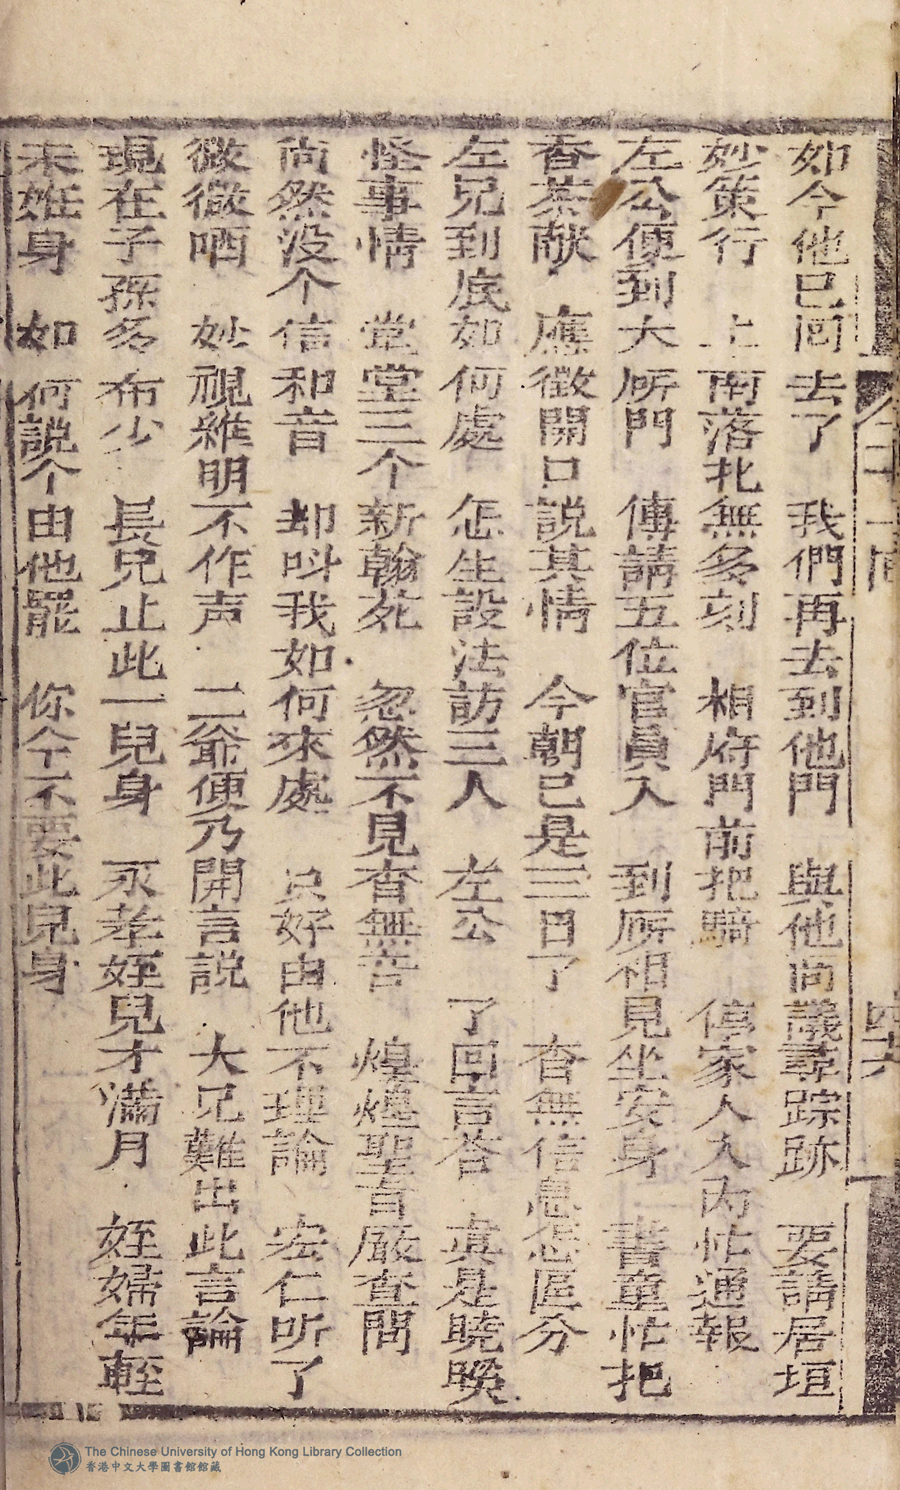 如今他已回去了　我們再去到他門　與他尚議尋踪跡　要請居垣
妙策行　上南落北無多刻　相府門前把騎　停家人入內忙通報
左公便到大所門　傳請五位官員入　到所相見坐安身　書童忙把
香茶献　應徵開口說其情　今朝已是三日了　杳無信息怎區分
左兄到底如何處　怎生設法訪三人　左公　了回言答　真是曉暌
怪事情　堂堂三个新翰苑　忽然不見杳無音　煌煌聖旨嚴查問
尚然没个信和音　却呌我如何來處　只好由他不理論　宏仁听了
微微哂　妙視雖明不作声　二爺便乃開言說　大兄難出此言論
現在子孫多布少　長兒止此一兒身　永孝姪兒才滿月　姪婦年輕
未姙身　如何說个由他罷　你今不要此兒身
四六
The Chinese University of Hong Kong Library Collection
香港中文大學圖書館館藏